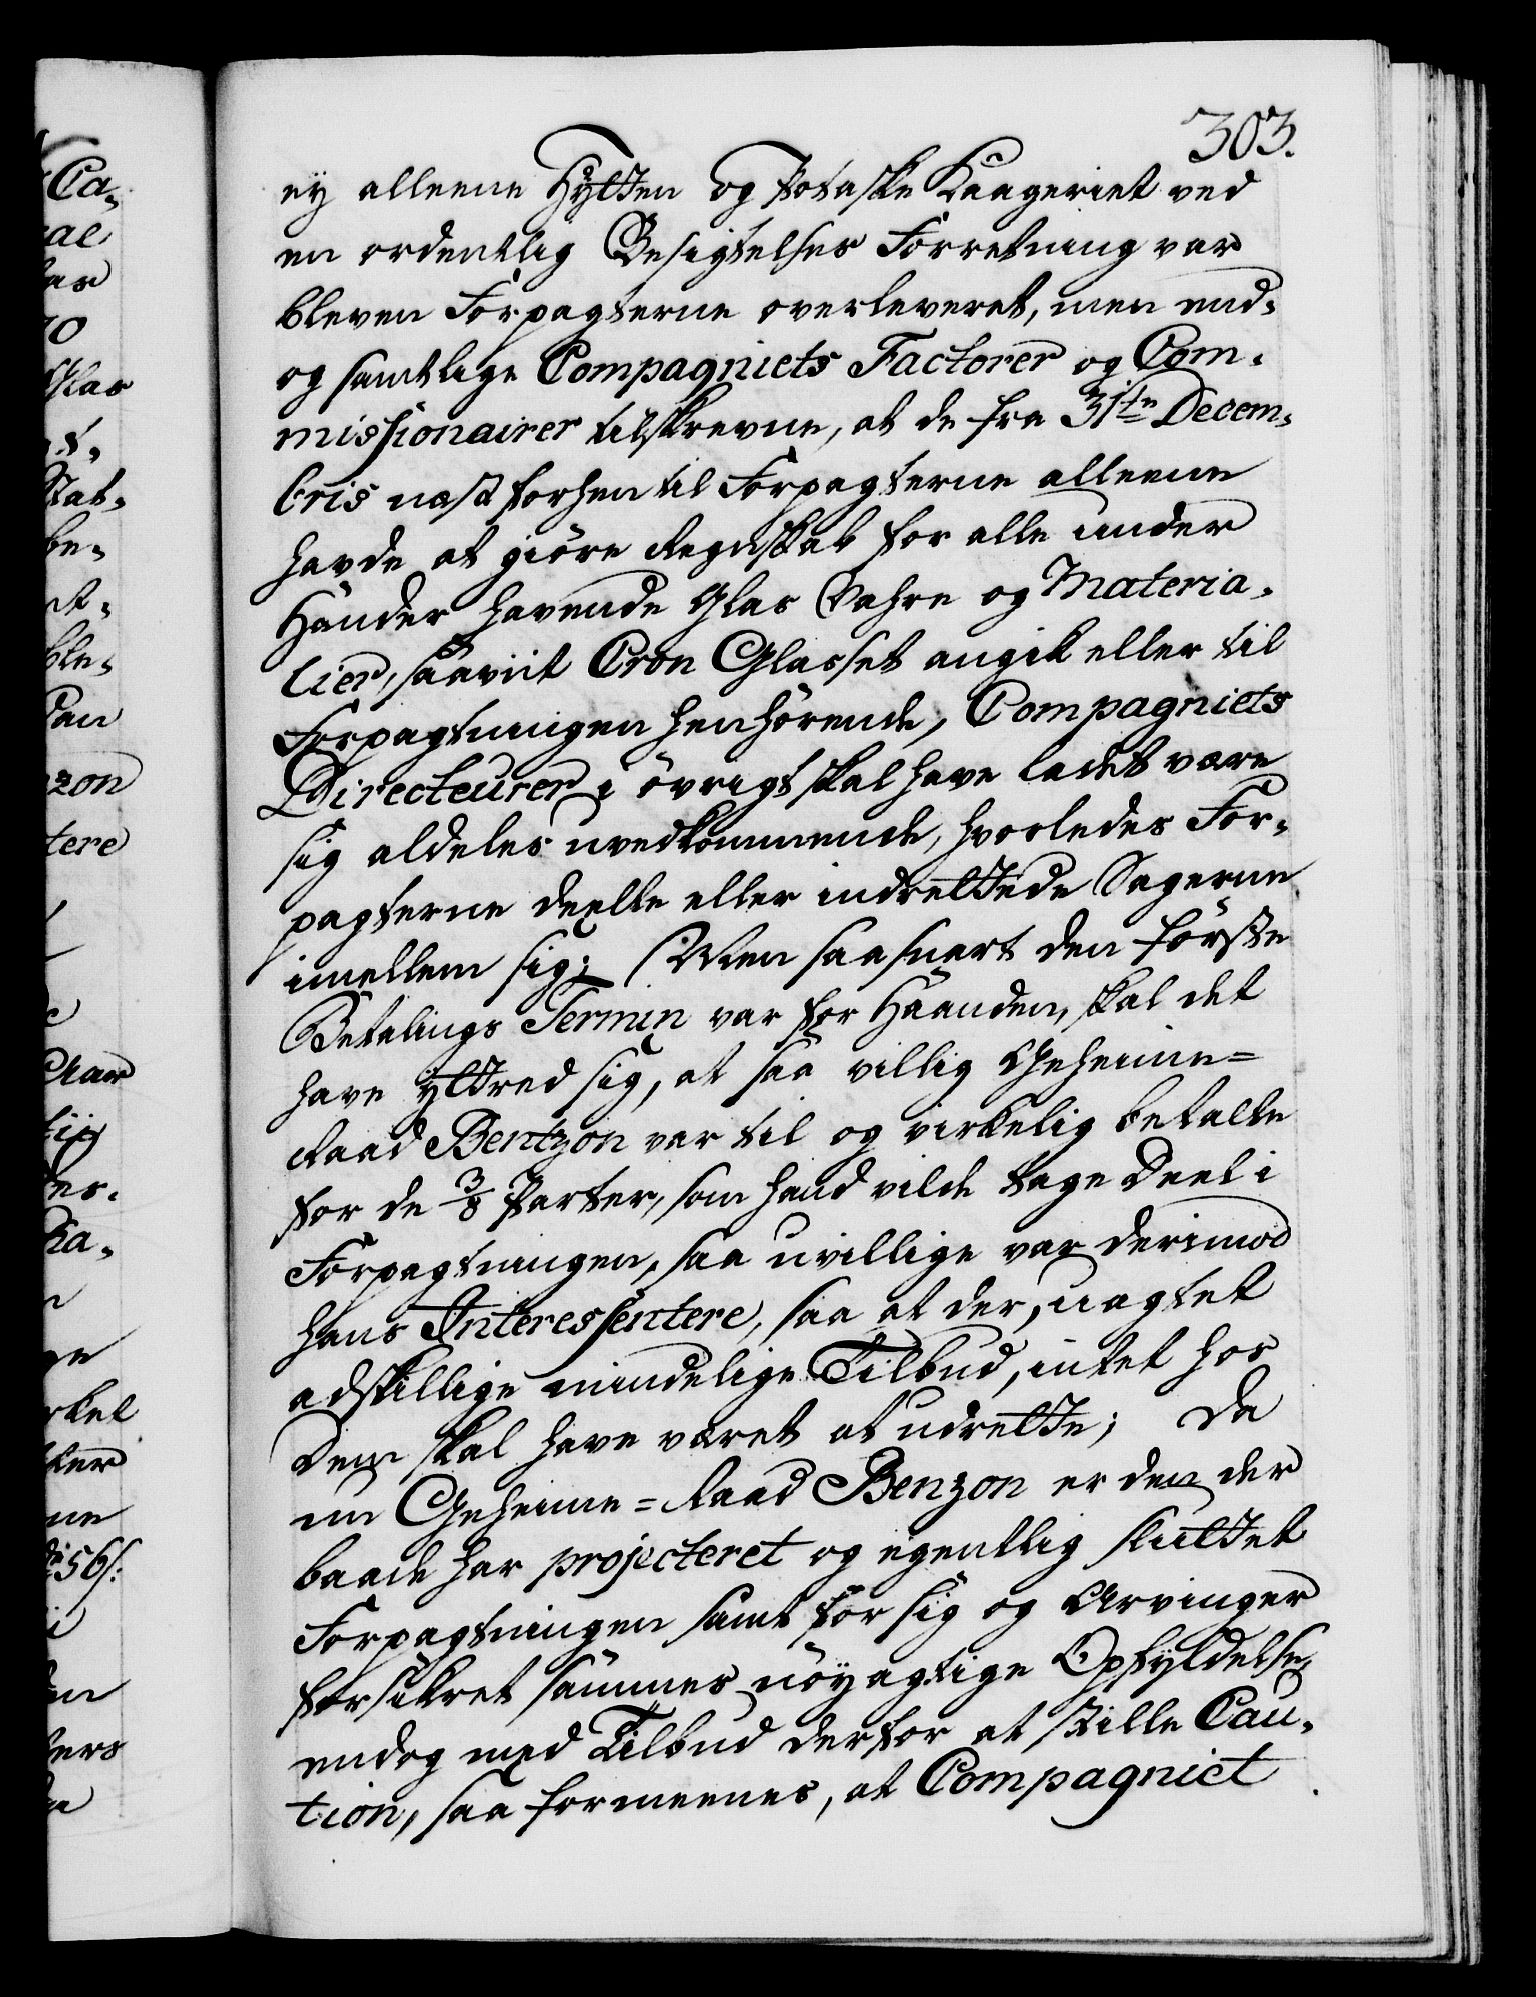 303.
ey alleene Hytten og Potaske Kaageriet ved
en ordentlig Besigtelses Forretning var
bleven Forpagterne overleveret, men end-
og samtlige Compagniets Factorer og Com-
missionairer tilskrevne, at de fra 31te Decem-
bris næst forhen til Forpagterne alleene
havde at giöre Regnskab for alle under
Händer havende Glas Vahre og Materia-
lier, saavit Cron Glasset angik eller til
Forpagtningen henhörende, Compagniets
Directeurer i övrigt skal have ladet være
sig aldeles uvedkommende, hvorledes For-
pagterne deelte eller indrettede Sagerne
imellem sig; Men saa snart den förste
Betalings Termin var for Haanden, skal det
have yttred sig, at saa villig Geheime=
Raad Bentzon var til og virkelig betalte
for de 3/8 Parter, som hand vilde tage Deel i
Forpagtningen, saa uvillige var derimod
hans Interessentere, saa at der, uagtet
adskillige mindelige Tilbud, intet hos
dem skal have været at udrette; Da
nu Geheime=Raad Benzon er den der
baade har projecteret og egentlig sluttet
Forpagtningen samt for sig og Arvinger
forsikret sammes nöyagtige Opfyldelse,
endog med Tilbud derfor at stille Cau-
tion, saa formeenes, at Compagniet
Ca-
ral
Glas
zon
tere
56 s: